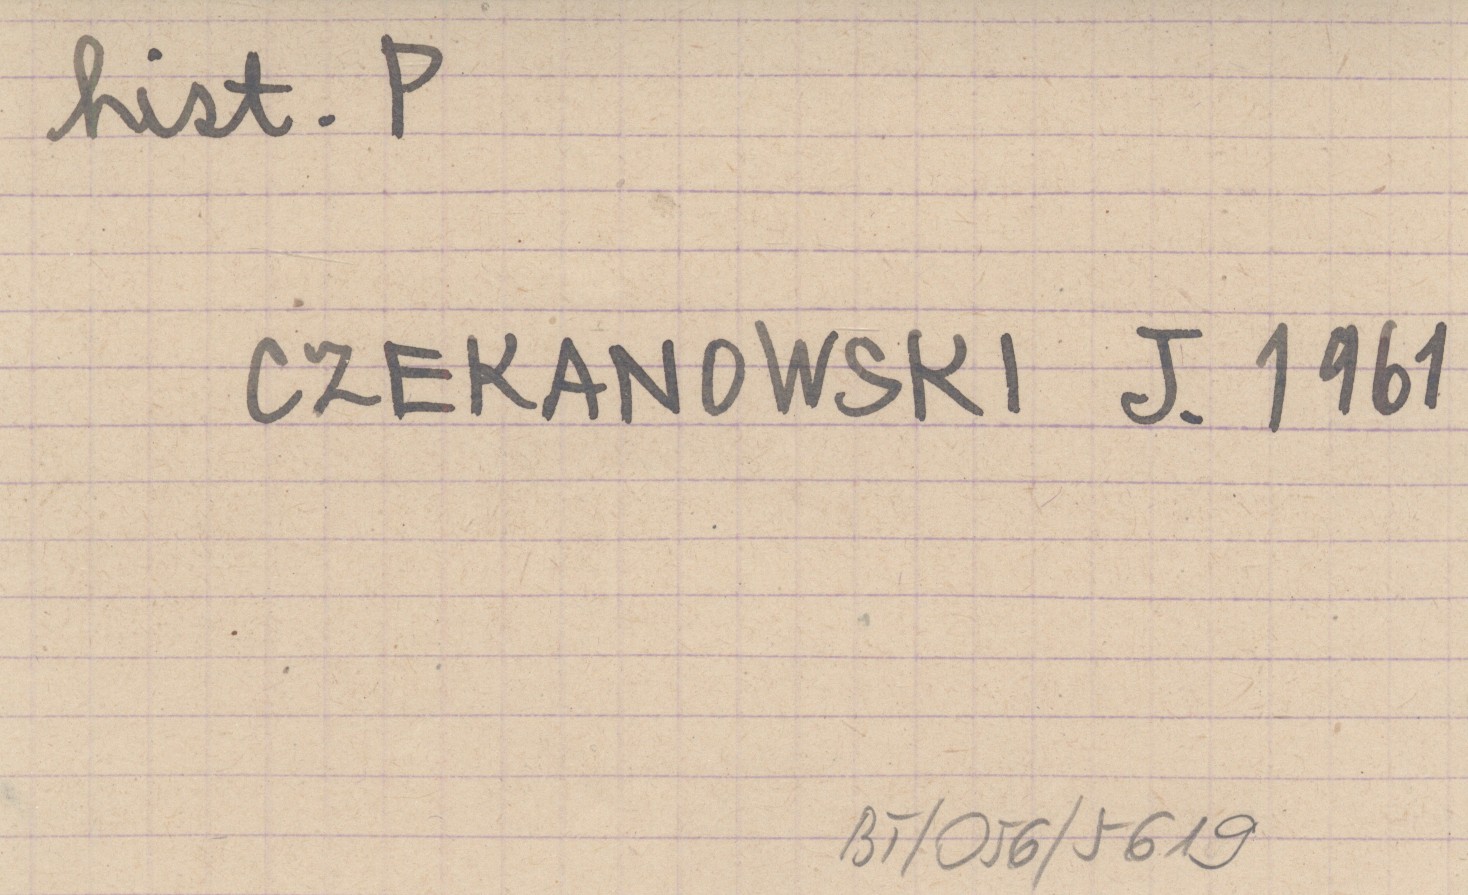 hist. P
CZEKANOWSKI J. 1961
BT/056/5619